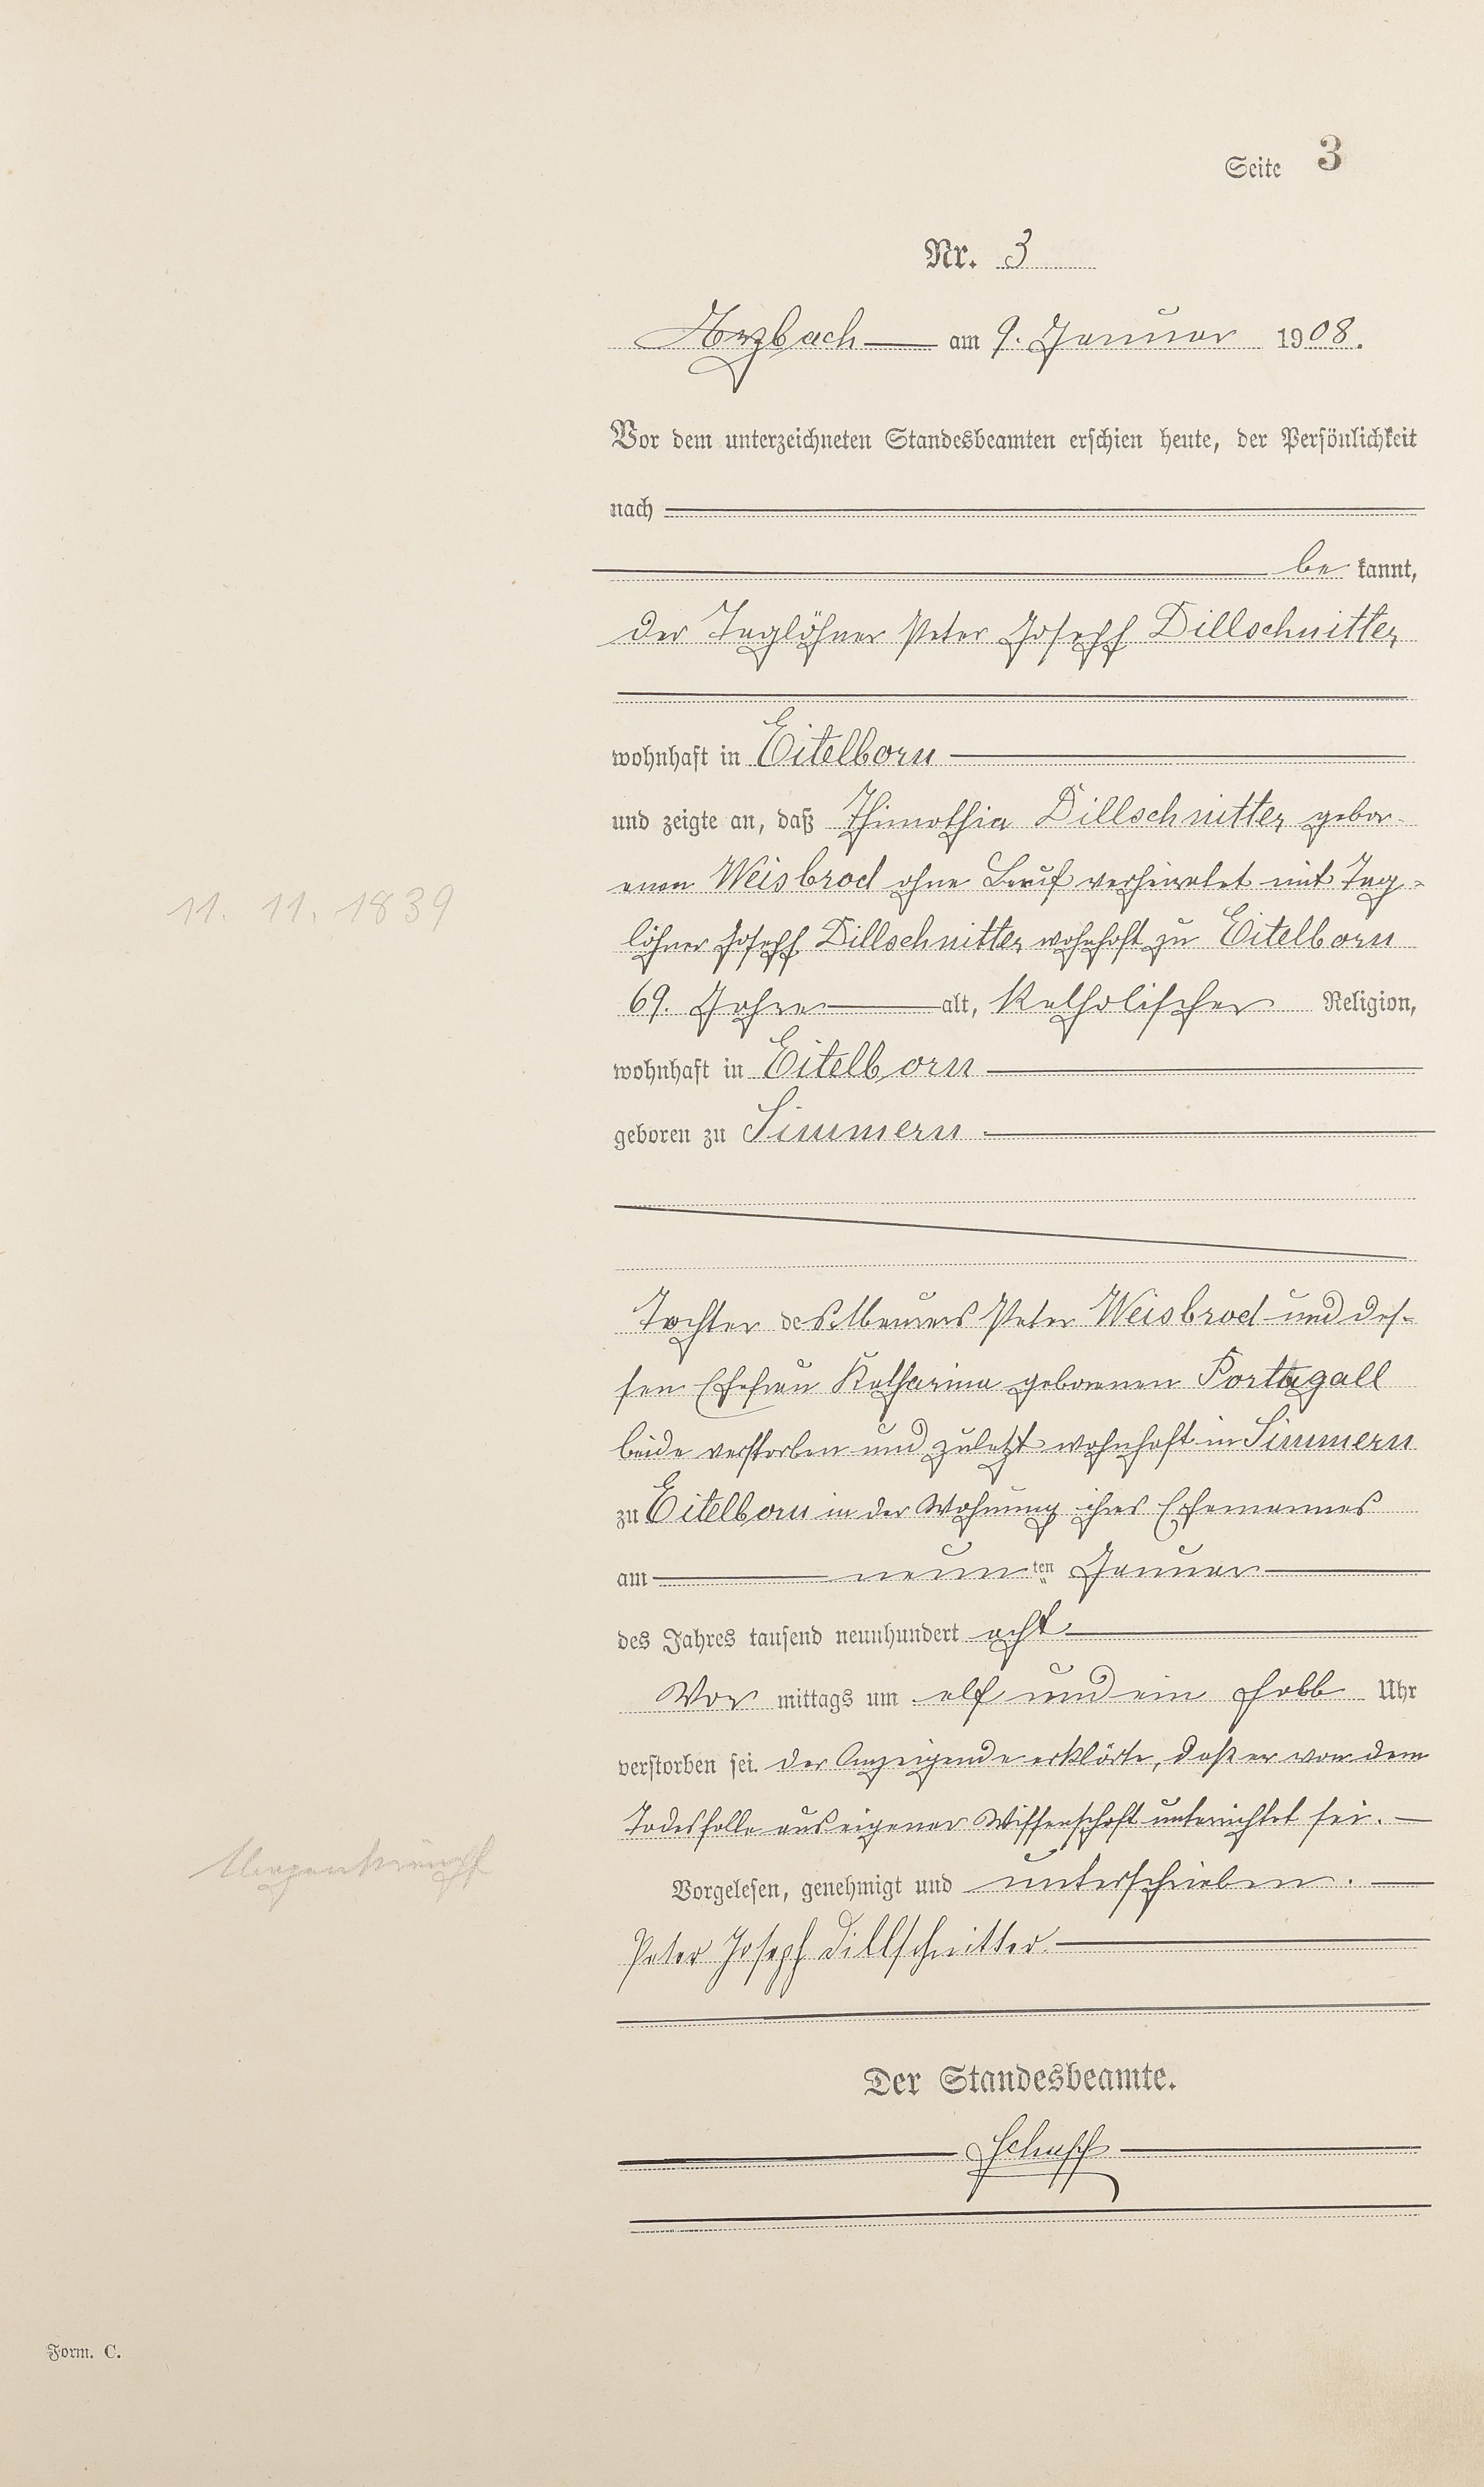 Seite 3
Nr. 3
Arzbach am 9. Januar 1908.
Vor dem unterzeichneten Standesbeamten erschien heute, der Persönlichkeit
nach
be kannt,
der Taglöhner Peter Joseph Dillschnitter
wohnhaft in Eitelborn
und zeigte an, daß Thimothia Dillschnitter gebor-
enen Weisbrod ohne Beruf verheiratet mit Tag-
löhner Joseph Dillschnitter wohnhaft zu Eitelborn
69. Jahre alt, Katholischer Religion,
wohnhaft in Eitelborn
geboren zu Simmern
11. 11. 1839
Tochter des Maurers Peter Weisbrod und des-
sen Ehefrau Katharina geborenen Portugall
beide verstorben und zuletzt wohnhaft in Simmern
zu Eitelborn in der Wohnung ihres Ehemannes
am neun ten Januar
des Jahres tausend neunhundert acht
Vor mittags um elf und ein halb Uhr
verstorben sei. Der Anzeigende erklärte, daß er von dem
Todesfalle aus eigener Wissenschaft unterrichtet sei.
Vorgelesen, genehmigt und unterschrieben.
Peter Joseph Dillschnitter
Der Standesbeamte.
Form. C.